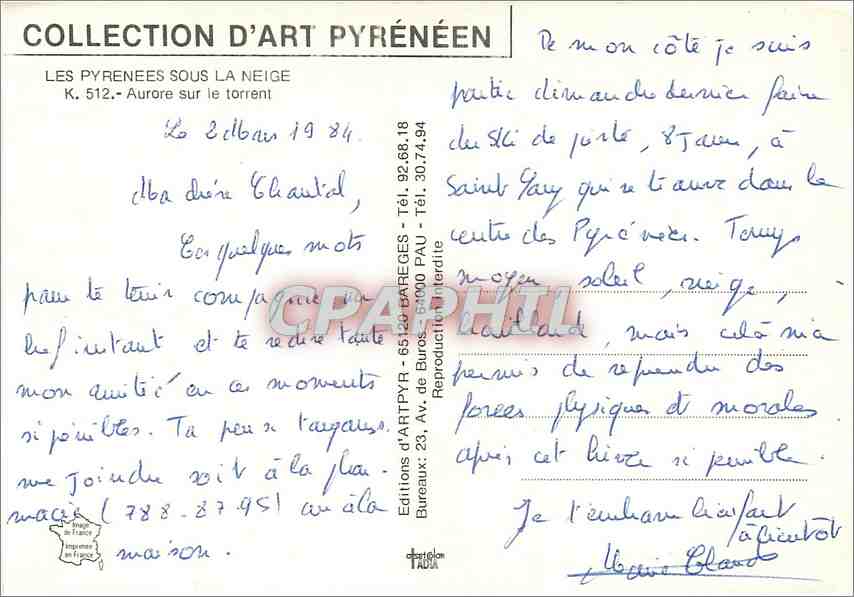 COLLECTION D'ART PYRÉNÉEN
LES PYRENEES SOUS LA NEIGE
K. 512.- Aurore sur le torrent
Le 2 Mars 1984.
Ma chère Chantal,
Ces quelques mots
pour te tenir compagnie un
bref instant et te redire toute
mon amitié en ces moments
si pénibles. Tu peux toujours
me joindre soit à la phar-
macie (788.87.95) ou à la
maison.
Image
de France
Imprimée
en France
Editions d'ARTPYR - 65120 BAREGES - Tél. 92.68.18
Bureaux: 23, Av. de Buros - 64000 PAU - Tél. 30.74.94
Reproduction interdite
CPAPHIL
De mon côté je suis
partie dimanche dernier faire
du ski de piste, 8 jours, à
Saint Lary qui se trouve dans le
centre des Pyrénées. Temps
moyen, soleil, neige,
brouillard, mais celà m'a
permis de reprendre des
forces physiques et morales
après cet hiver si pénible.
Je t'embrasse bien fort
à bientôt
Marie Claude